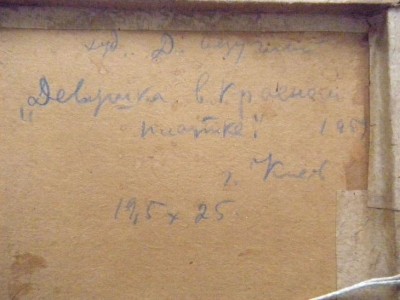 худ. Д.
„Девушка в красном
платке"
г. Киев
19,5 x 25